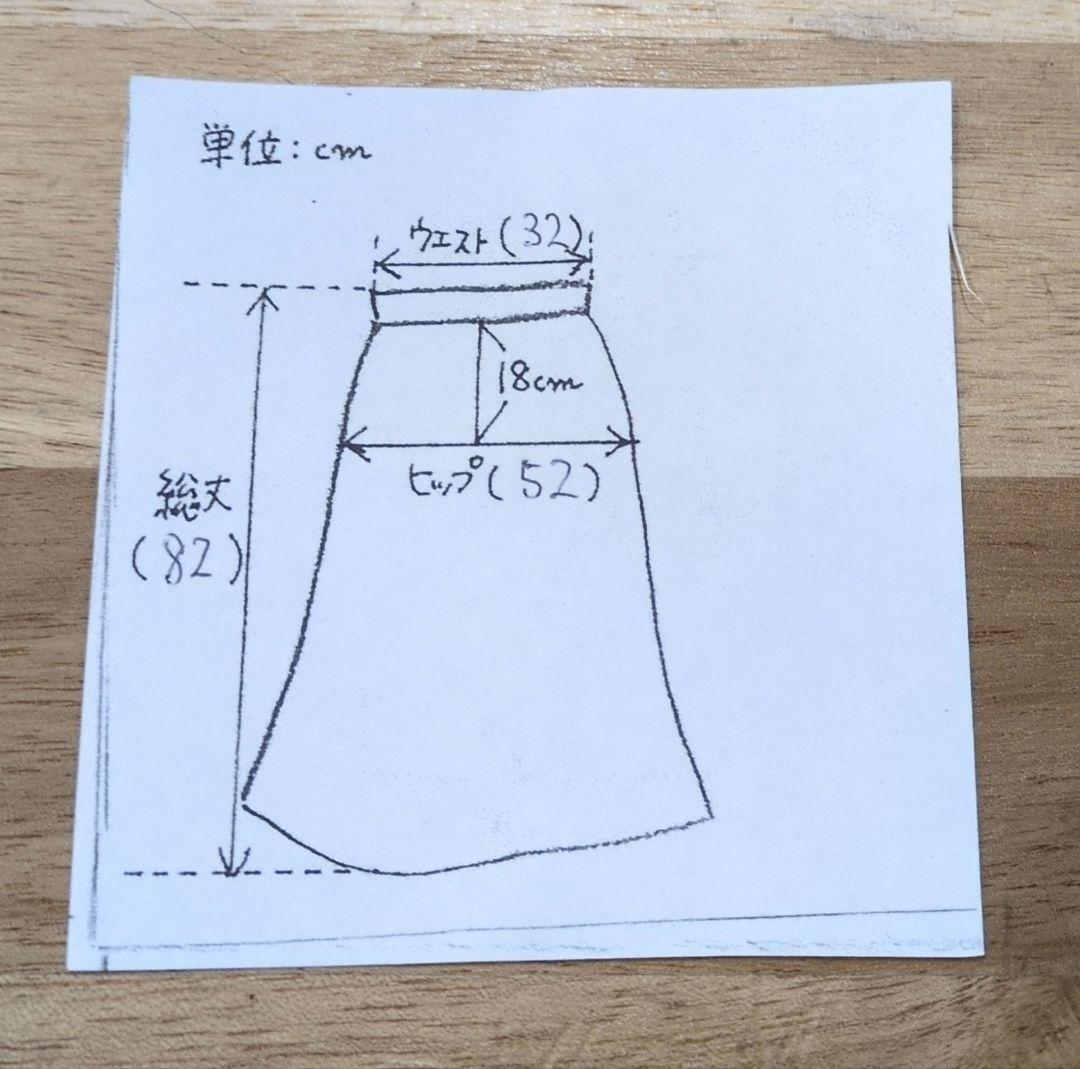 単位:cm
ウエスト(32)
18cm
ヒップ(52)
総丈
(82)